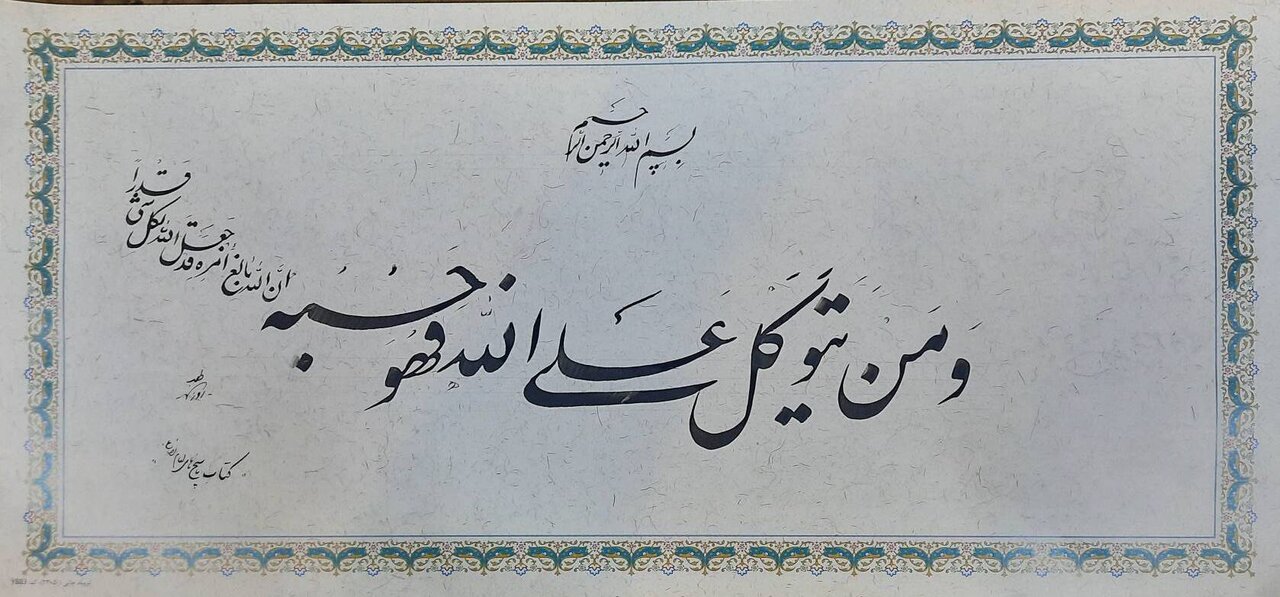 بسم الله الرحمن الرحیم
وَمَن یتوکل عَلی الله فَهُوَ حَسبُه
انَّ الله بالغ امره قد جعَل الله لکل شیء قَدراً
کتاب